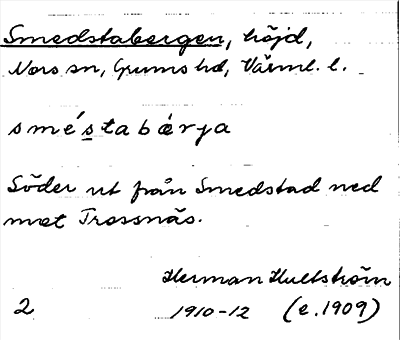 Smedstabergen, höjd,
Nors sn, Grums hd, Värml. l.
smé's̲tabærja
Söder ut från Smedstad ned
mot Trossnäs.
Herman Hultström
2 1910-12 (e. 1909)